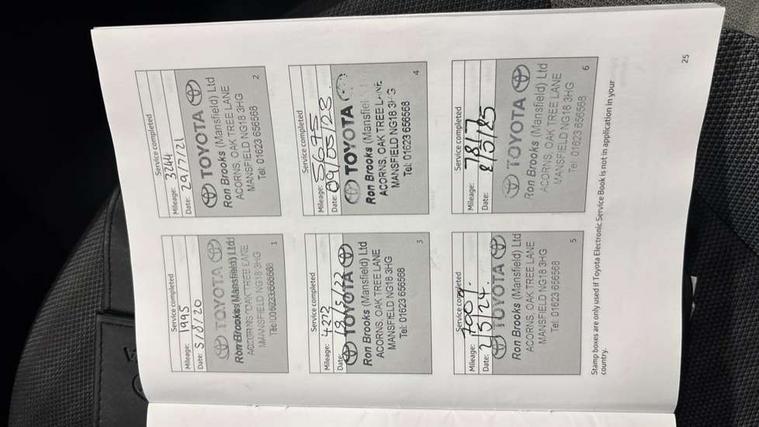 Service completed
Mileage: 1995
Date: 5/8/20
TOYOTA
Ron Brooks (Mansfield) Ltd
ACORNS, OAK TREE LANE
MANSFIELD NG18 3HG
Tel: 01623 656568
1
Service completed
Mileage: 3244
Date: 29/7/21
TOYOTA
Ron Brooks (Mansfield) Ltd
ACORNS, OAK TREE LANE
MANSFIELD NG18 3HG
Tel: 01623 656568
2
Service completed
Mileage: 4272
Date:
TOYOTA
Ron Brooks (Mansfield) Ltd
ACORNS, OAK TREE LANE
MANSFIELD NG18 3HG
Tel: 01623 656568
3
Service completed
Mileage: 5695
Date: 09/05/23
TOYOTA
Ron Brooks (Mansfiel
ACORNS, OAK TREE LANE
MANSFIELD NG18 3HG
Tel: 01623 656568
4
Service completed
Mileage: 7001
Date: 2/5/24
TOYOTA
Ron Brooks (Mansfield) Ltd
ACORNS, OAK TREE LANE
MANSFIELD NG18 3HG
Tel: 01623 656568
5
Service completed
Mileage: 7817
Date: 8/5/25
TOYOTA
Ron Brooks (Mansfield) Ltd
ACORNS, OAK TREE LANE
MANSFIELD NG18 3HG
Tel: 01623 656568
6
Stamp boxes are only used if Toyota Electronic Service Book is not in application in your
country.
25